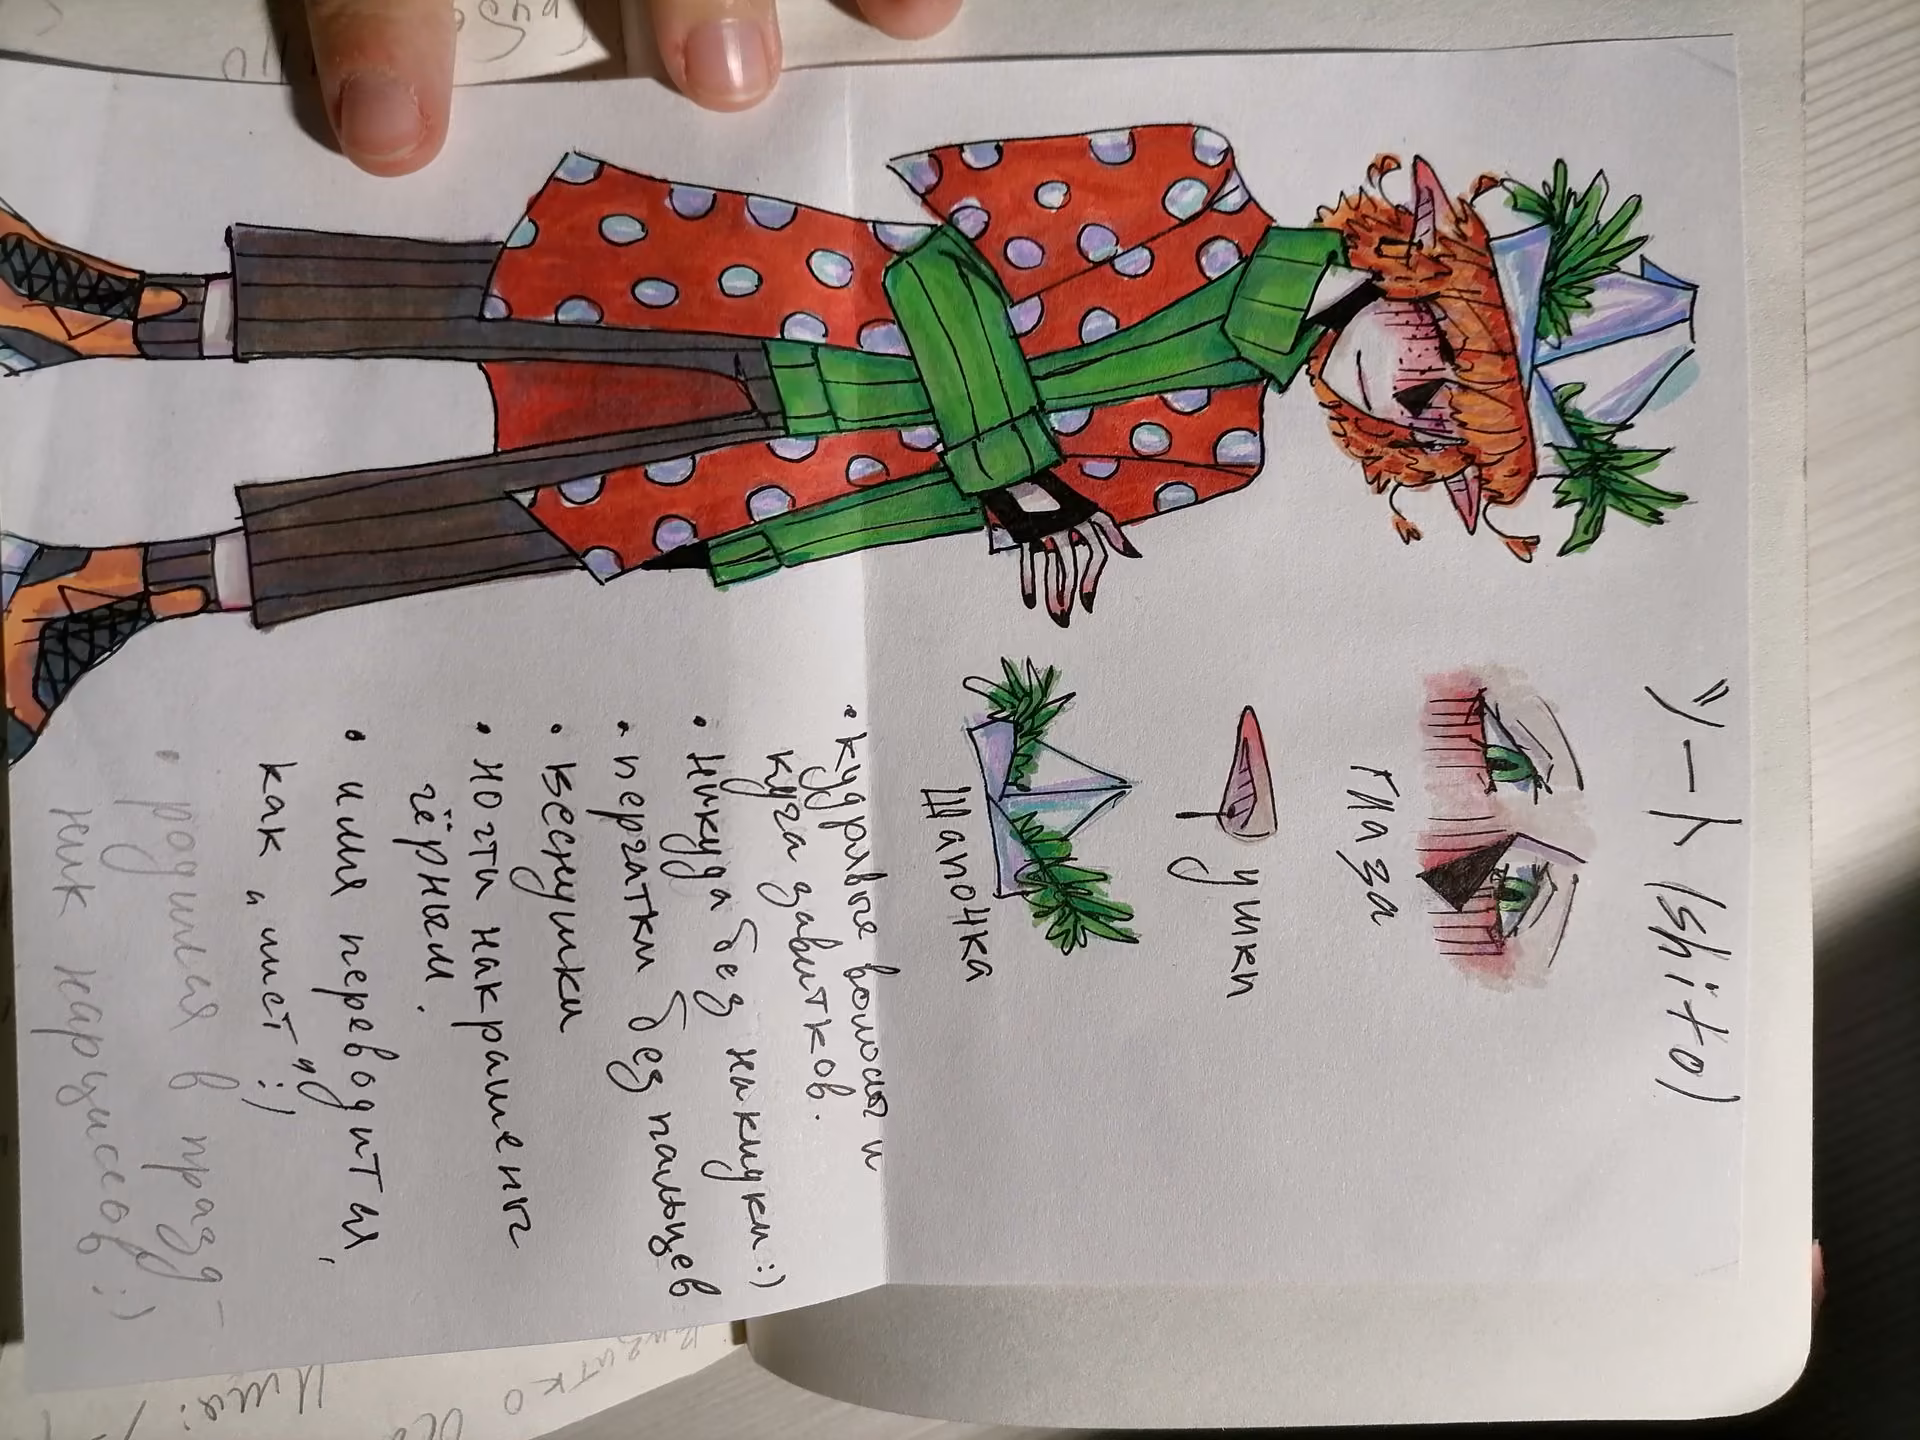 シート (shi:to)
глаза
ушки
шапочка
• кудрявые волосы и
куча завитков.
• никуда без накидки :)
• перчатки без пальцев
• веснушки
• ногти накрашены
чёрным.
• имя переводится,
как "лист" :)
• родился в празд-
ник нарциссов :)